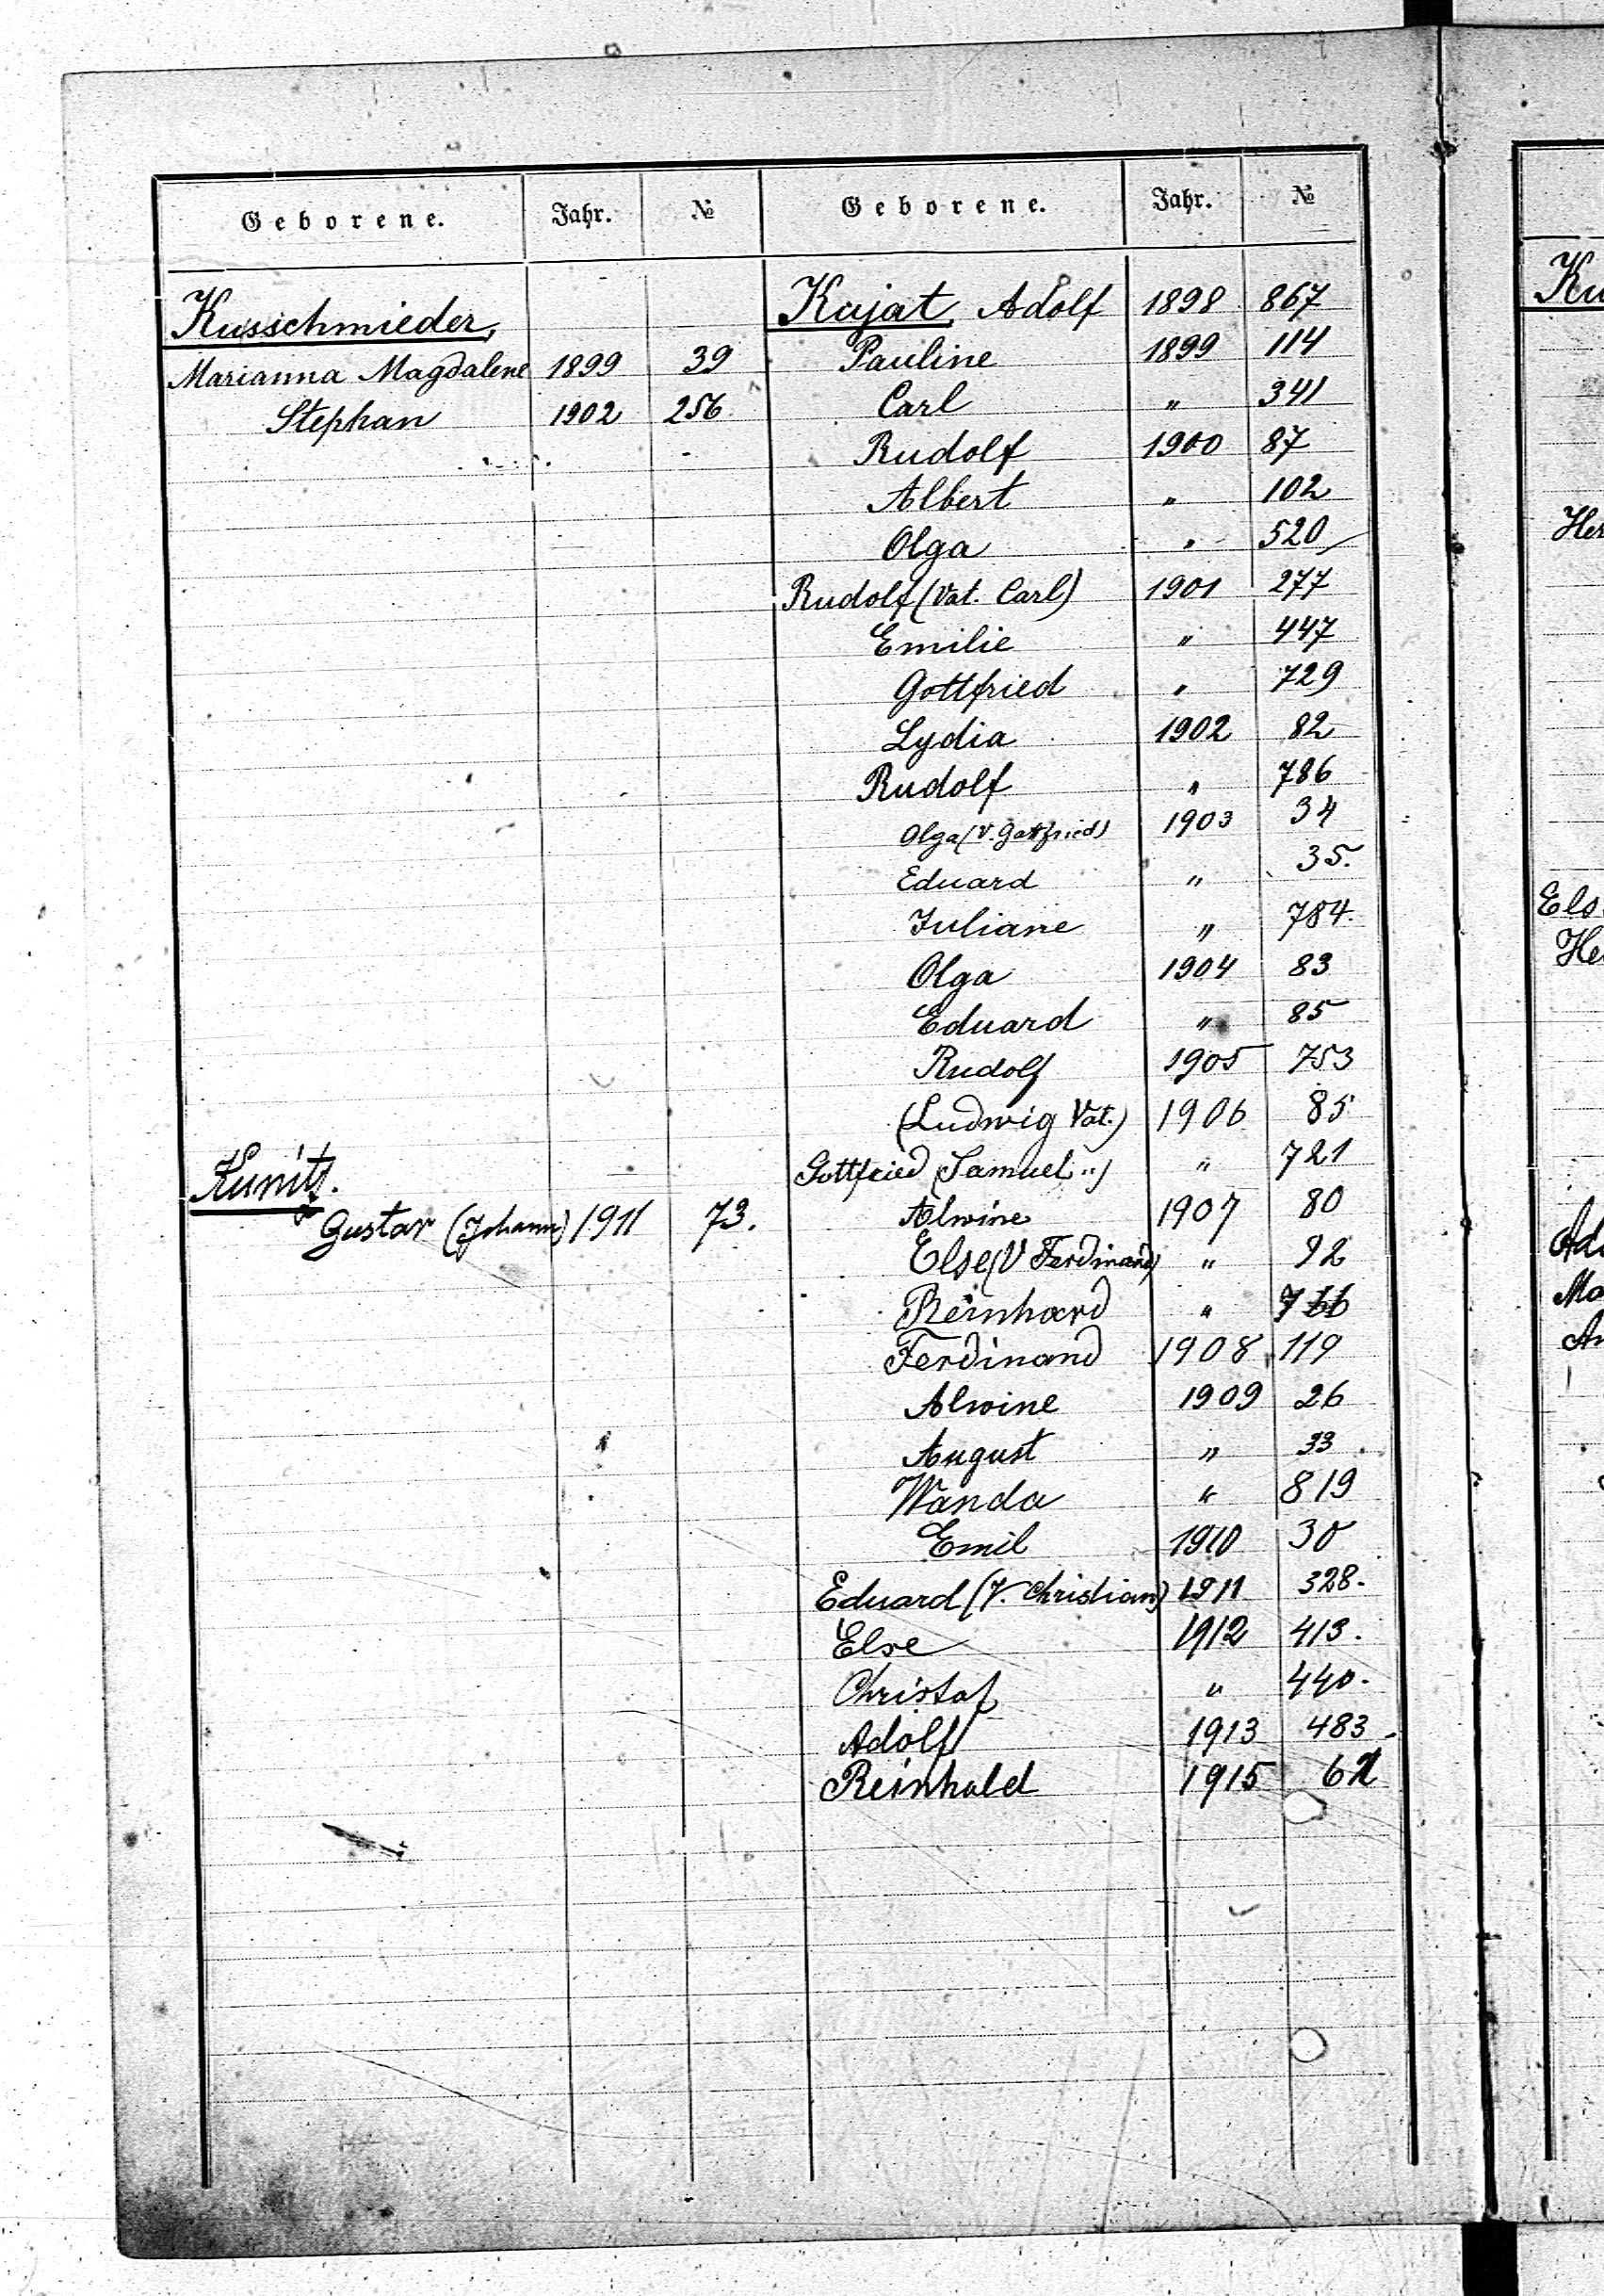 Geborene. Jahr. № Geborene. Jahr. №
Kusschmieder,
Marianna Magdalene 1899 39
Stephan 1902 256
Kunitz.
Gustav (Johann) 1911 73.
Kujat, Adolf 1898 867
Pauline 1899 114
Carl " 341
Rudolf 1900 87
Albert " 102
Olga " 520
Rudolf (Vat. Carl) 1901 277
Emilie " 447
Gottfried " 729
Lydia 1902 82
Rudolf " 786
Olga (V. Gottfried) 1903 34
Eduard " 35.
Juliane " 784.
Olga 1904 83
Eduard " 85
Rudolf 1905 753
(Ludwig Vat.) 1906 85
Gottfried (Samuel ") " 721
Alwine 1907 80
Else (V Ferdinand) " 92
Reinhard " 766
Ferdinand 1908 119
Alwine 1909 26
August " 33
Wanda " 819
Emil 1910 30
Eduard (V. Christian) 1911 328.
Else 1912 413.
Christof " 440.
Adolf 1913 483
Reinhold 1915
Ku
Her
Els
He
Ad
Ma
An